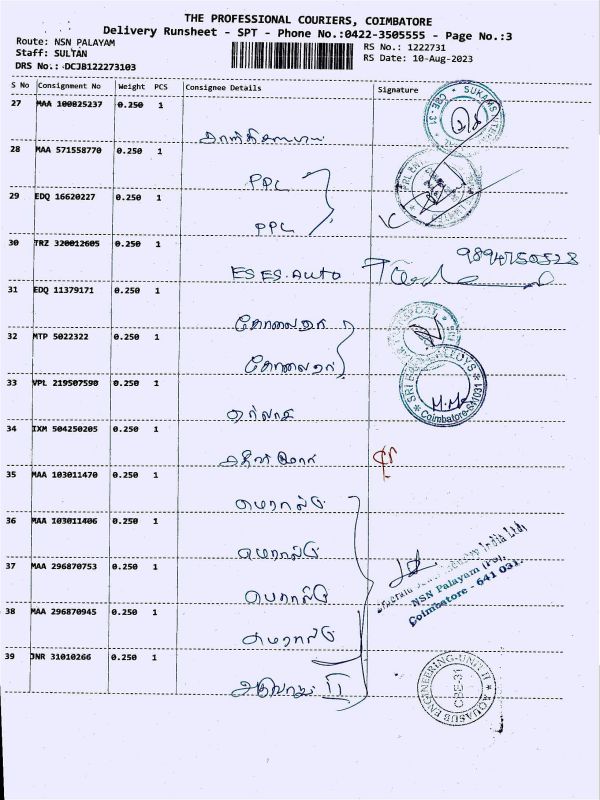 THE PROFESSIONAL COURIERS, COIMBATORE
Delivery Runsheet - SPT - Phone No.:0422-3505555 - Page No.:3
Route: NSN PALAYAM
Staff: SULTAN
DRS No.: DCJB122273103
RS No.: 1222731
RS Date: 10-Aug-2023
S No Consignment No Weight PCS Consignee Details Signature
27 MAA 100825237 0.250 1
28 MAA 571558770 0.250 1
PPL
29 EDQ 16620227 0.250 1
PPL
30 TRZ 320012605 0.250 1
9894750528
ES ES. Auto
31 EDQ 11379171 0.250 1
கோவைதர்
32 MTP 5022322 0.250 1
கோவைதர்
33 VPL 219507590 0.250 1
34 IXM 504250205 0.250 1
35 MAA 103011470 0.250 1
எமரால்டு
36 MAA 103011406 0.250 1
எமரால்டு
37 MAA 296870753 0.250 1
எமரால்டு
NSN Palayam (Po),
Coimbatore - 641 031.
38 MAA 296870945 0.250 1
எமரால்டு
39 JNR 31010266 0.250 1
II
AQUASUB ENGINEERING-UNIT-II
CBE-31
Coimbatore-641031